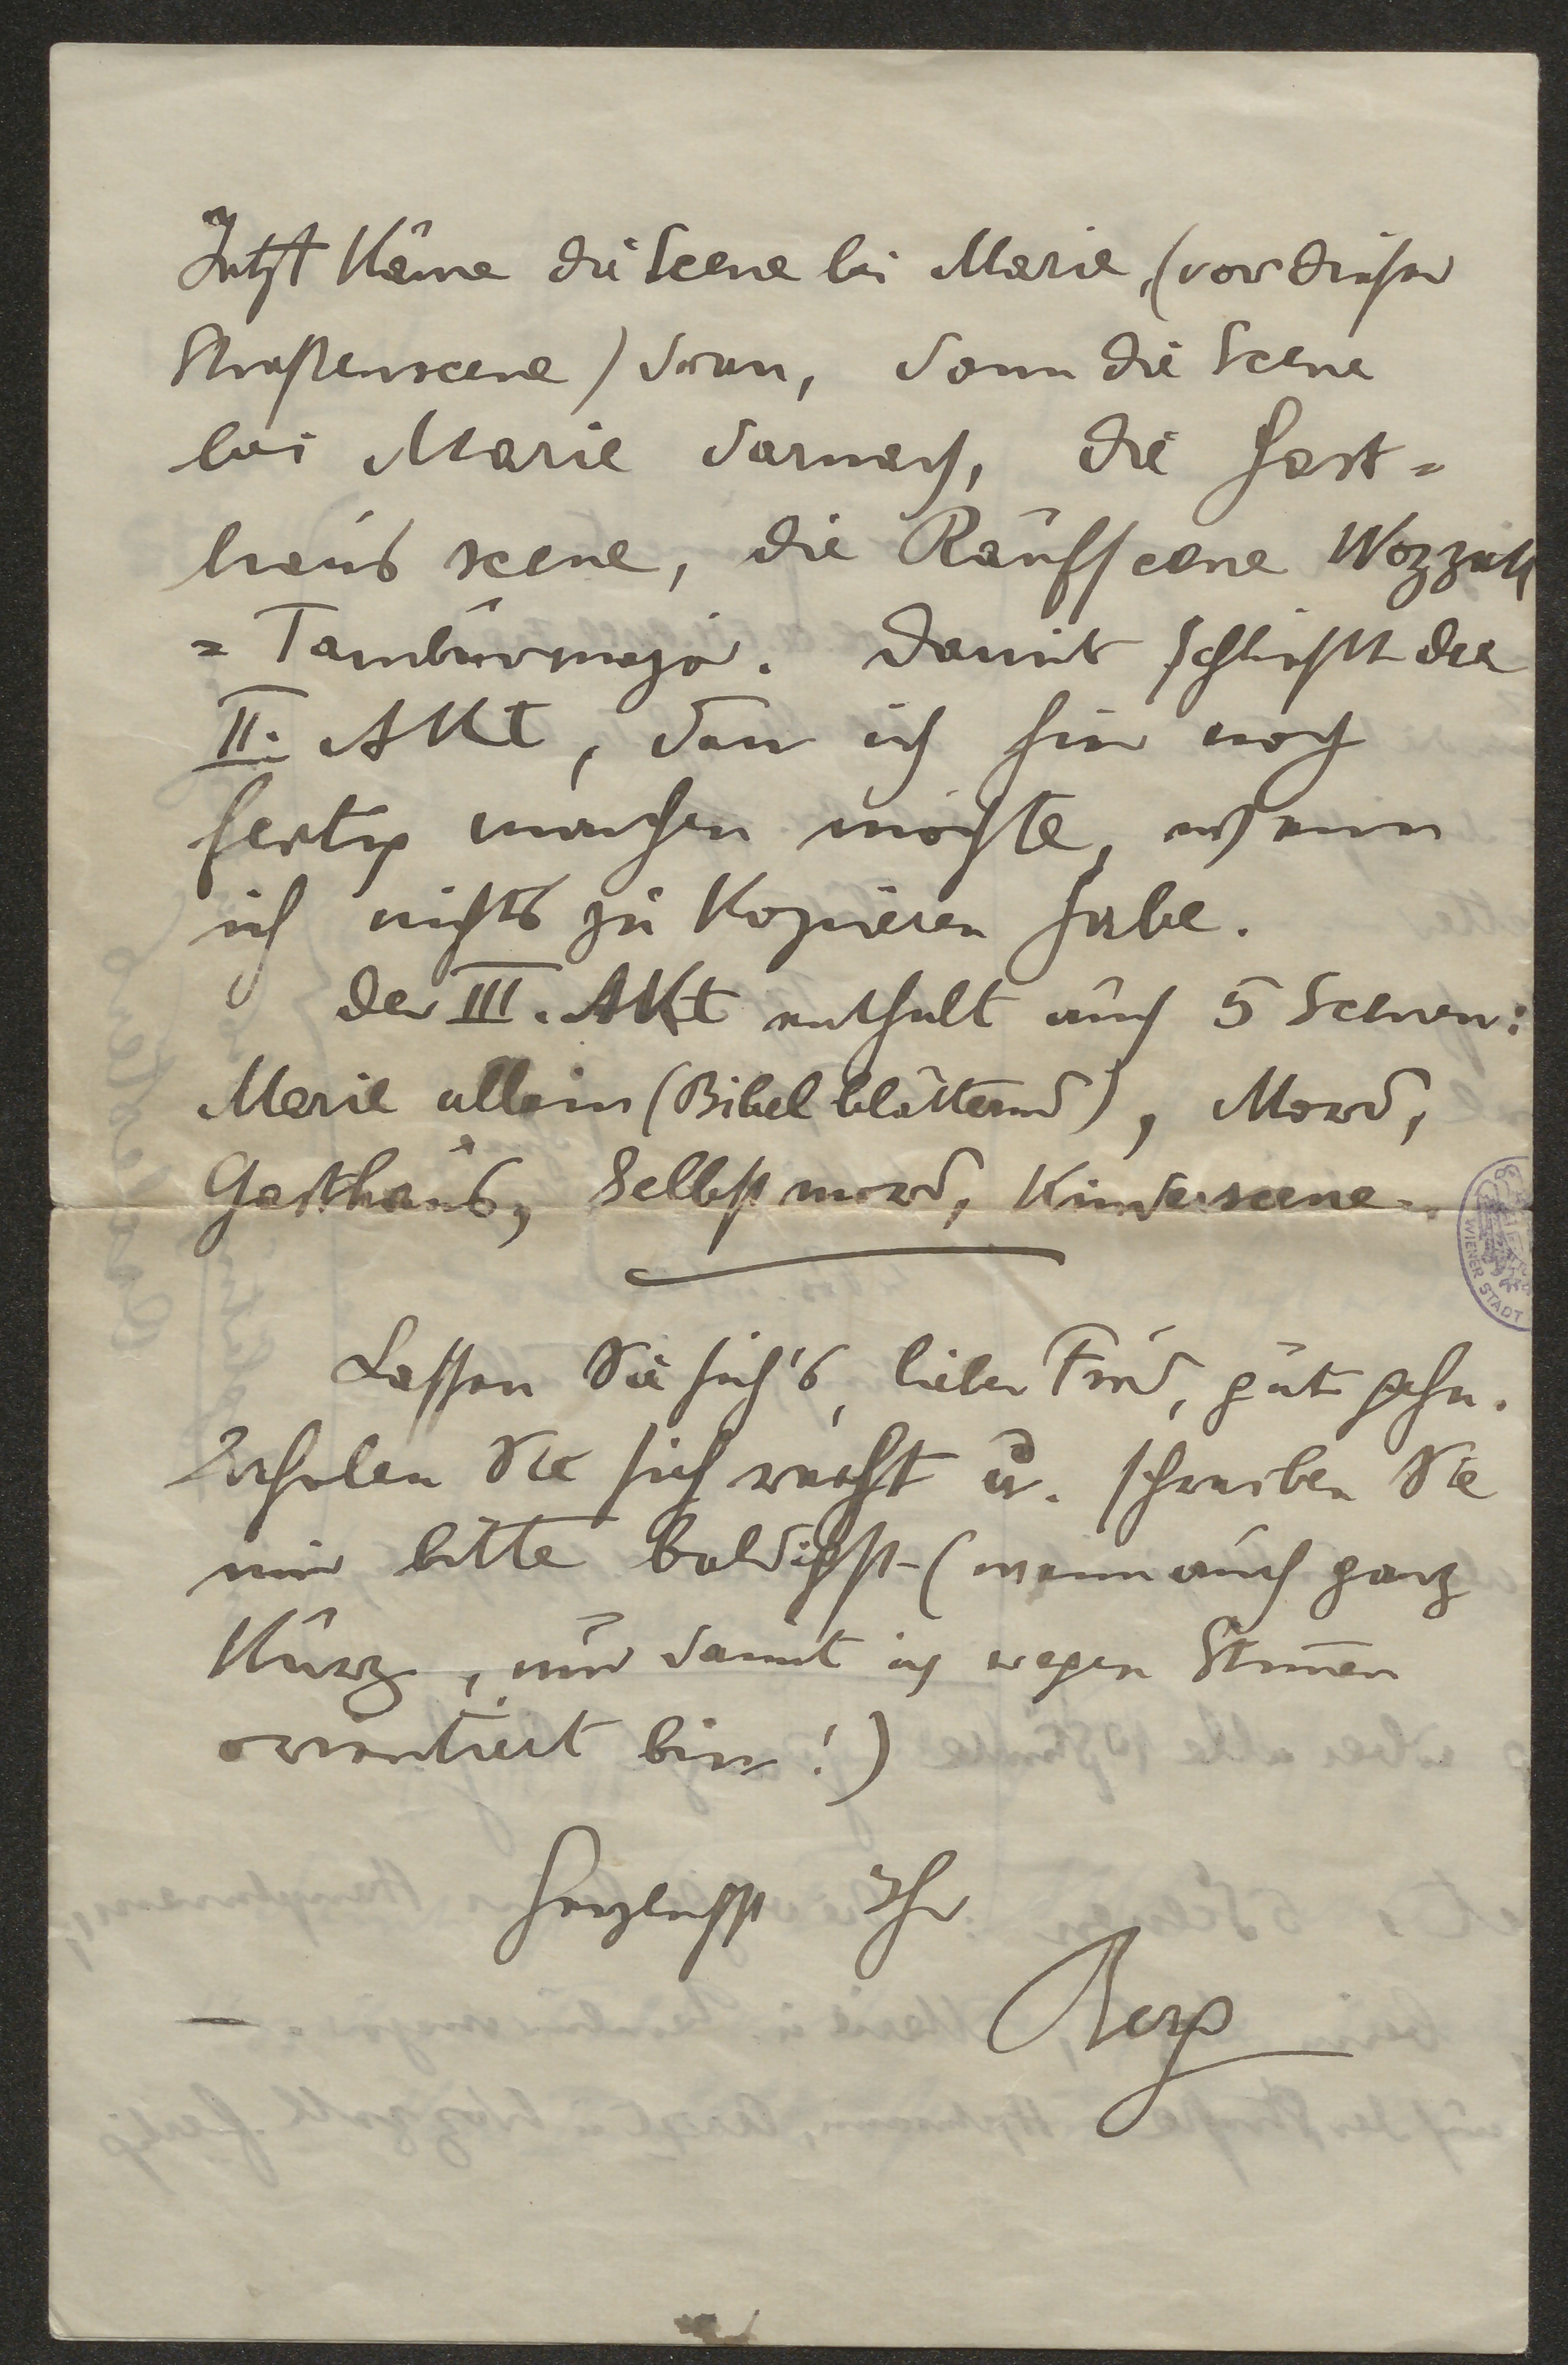 Jetzt käme die Scene bei Marie, (vor dieser
Straßenscene) dran, dann die Scene
bei Marie darnach, die Gast=
haus scene, die Raufscene Wozzeck
= Tambourmajor. Damit schließt der
II. Akt, den ich hier noch
fertig machen möchte, wenn
ich nichts zu kopieren habe.
Der III. Akt enthält auch 5 Scenen:
Marie allein (Bibel blätternd), Mord,
Gasthaus, Selbstmord, Kinderscene.
Lassen Sie sich's, lieber Freund, gut gehn.
Erholen Sie sich recht u. schreiben Sie
mir bitte baldigst (wenn auch ganz
kurz, nur damit ich wegen
orientiert bin!)
Herzlichst Ihr
Berg
WIENER STADT